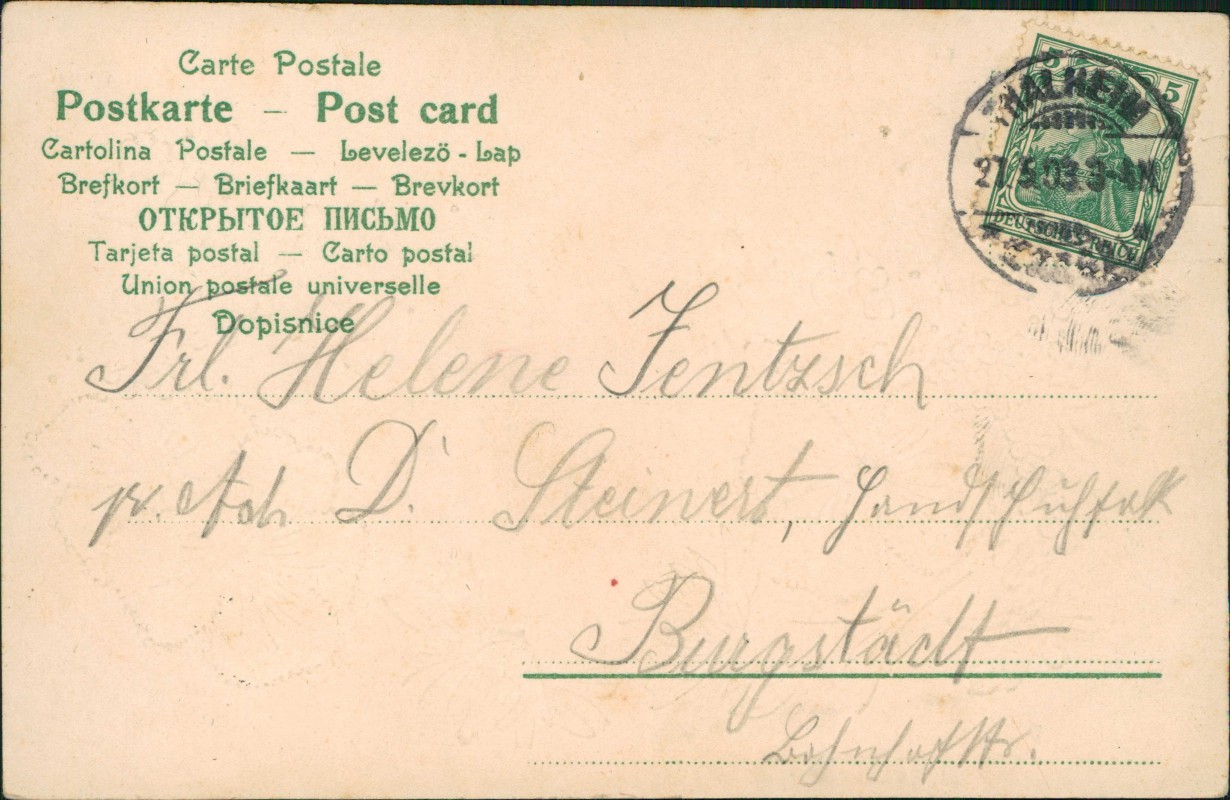 Carte Postale
Postkarte — Post card
Cartolina Postale — Levelezö-Lap
Brefkort — Briefkaart — Brevkort
ОТКРЫТОЕ ПИСЬМО
Tarjeta postal — Carto postal
Union postale universelle
Dopisnice
5 5
THALHEIM
DEUTSCHES REICH
Frl. Helene Jentzsch
pr. Adr. D. Steinert, Handschuhfabk
Burgstädt
Bahnhofstr.